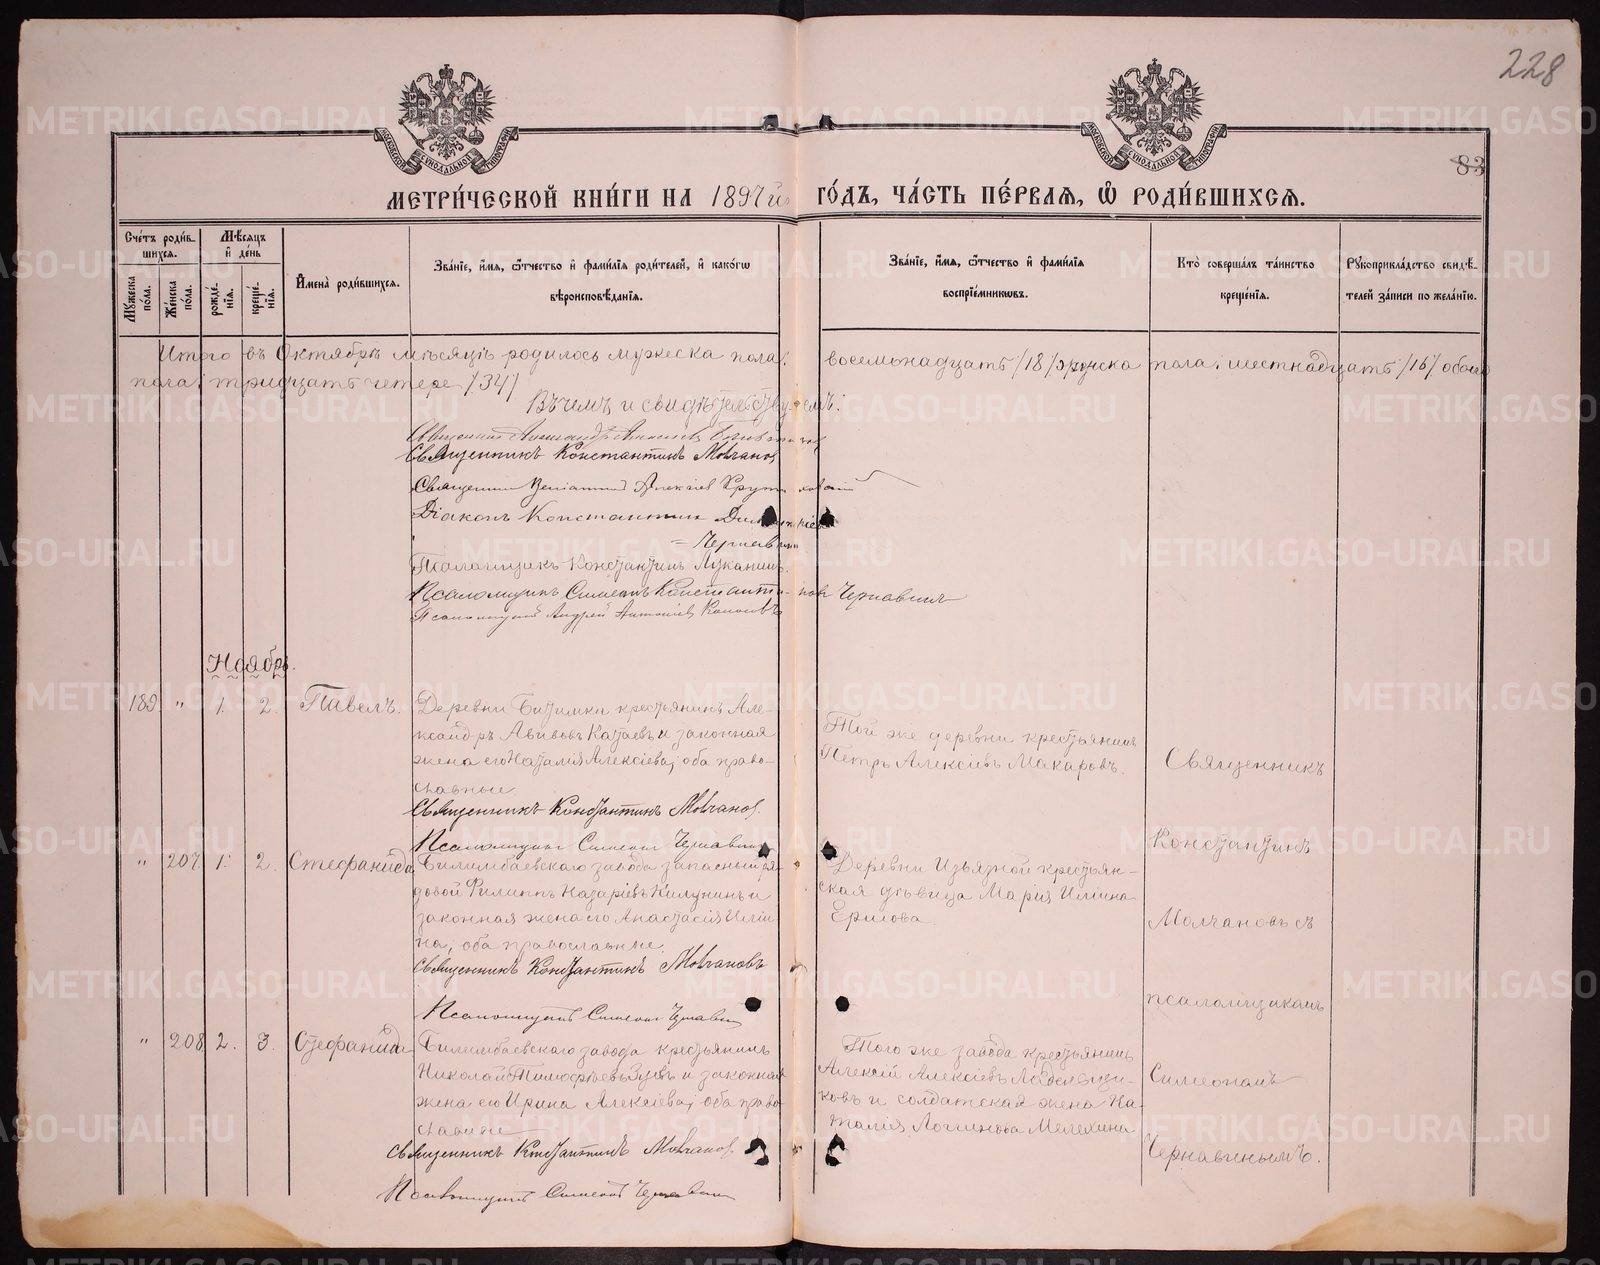 228
83
МОСКОВСКОЙ СѴНОДАЛЬНОЙ ТИПОГРАФІИ
МОСКОВСКОЙ СѴНОДАЛЬНОЙ ТИПОГРАФІИ
МЕТРИ́ЧЕСКОЙ КНИ́ГИ НА 1897й ГО́ДЪ, ЧА́СТЬ ПЕ́РВАЯ, Ѡ РОДИ́ВШИХСЯ.
Сче́тъ роди́в-
шихся.
Мꙋ́жеска по́ла.
Же́нска по́ла.
Мѣ́сяцъ
и҆ де́нь
рожде́-
нїя.
креще́-
нїя.
И҆мена̀ роди́вшихся.
Зва́нїе, и҆́мя, ѻ҆́тчество и҆ фами́лїя роди́телей, и҆ како́гѡ
вѣроисповѣ́данїя.
Зва́нїе, и҆́мя, ѻ҆́тчество и҆ фами́лїя
воспрїе́мникѡвъ.
Кто̀ соверша́лъ та́инство
креще́нїя.
Рꙋкоприкла́дство свидѣ́-
телей за́писи по жела́нїю.
Итого въ Октябрѣ мѣсяцѣ родилось мужеска пола: восемьнадцать /18/ женска пола: шестнадцать /16/ обоего
пола: тридцать четере /34/
Въ чемъ и свидѣтельствуемъ:
Священникъ Александръ
Священникъ Константинъ Молчановъ
Священникъ Веніаминъ Алексіевъ
Діаконъ Константинъ Димитріевъ
= Чернавинъ
Псаломщикъ Константинъ Луканинъ.
Псаломщикъ Симеонъ Константиновъ Чернавинъ
Псаломщикъ Андрей Антоніевъ
Ноябрь.
189 " 1. 2. Павелъ.
Деревни Битимки крестьянинъ Але-
ксандръ Авивовъ Катаевъ и законная
жена его Наталія Алексіева, оба право-
славные
Священникъ Константинъ Молчановъ.
Псаломщикъ Симеонъ Чернавинъ
Той же деревни крестьянинъ
Петръ Алексіевъ Макаровъ.
Священникъ
Константинъ
Молчановъ съ
псаломщикомъ
Симеономъ
Чернавинымъ.
" 207. 1. 2. Стефанида
Билимбаевскаго завода запасный ря-
довой Филиппъ Назаріевъ Килунинъ и
законная жена его Анастасія Иліи
на, оба православные.
Священникъ Константинъ Молчановъ
Псаломщикъ Симеонъ Чернавинъ
Деревни Извязной крестьян-
ская дѣвица Марія Иліина
Ершова
" 208 2. 3. Стефанида
Билимбаевскаго завода крестьянинъ
Николай Тимофѣевъ Зуевъ и законная
жена его Ирина Алексіева, оба право
славные
Священникъ Константинъ Молчановъ
Псаломщикъ Симеонъ Чернавинъ
Того же завода крестьянинъ
Алексій Алексіевъ
ковъ и солдатская жена На-
талія Логинова Мелехина
METRIKI.GASO-URAL.RU